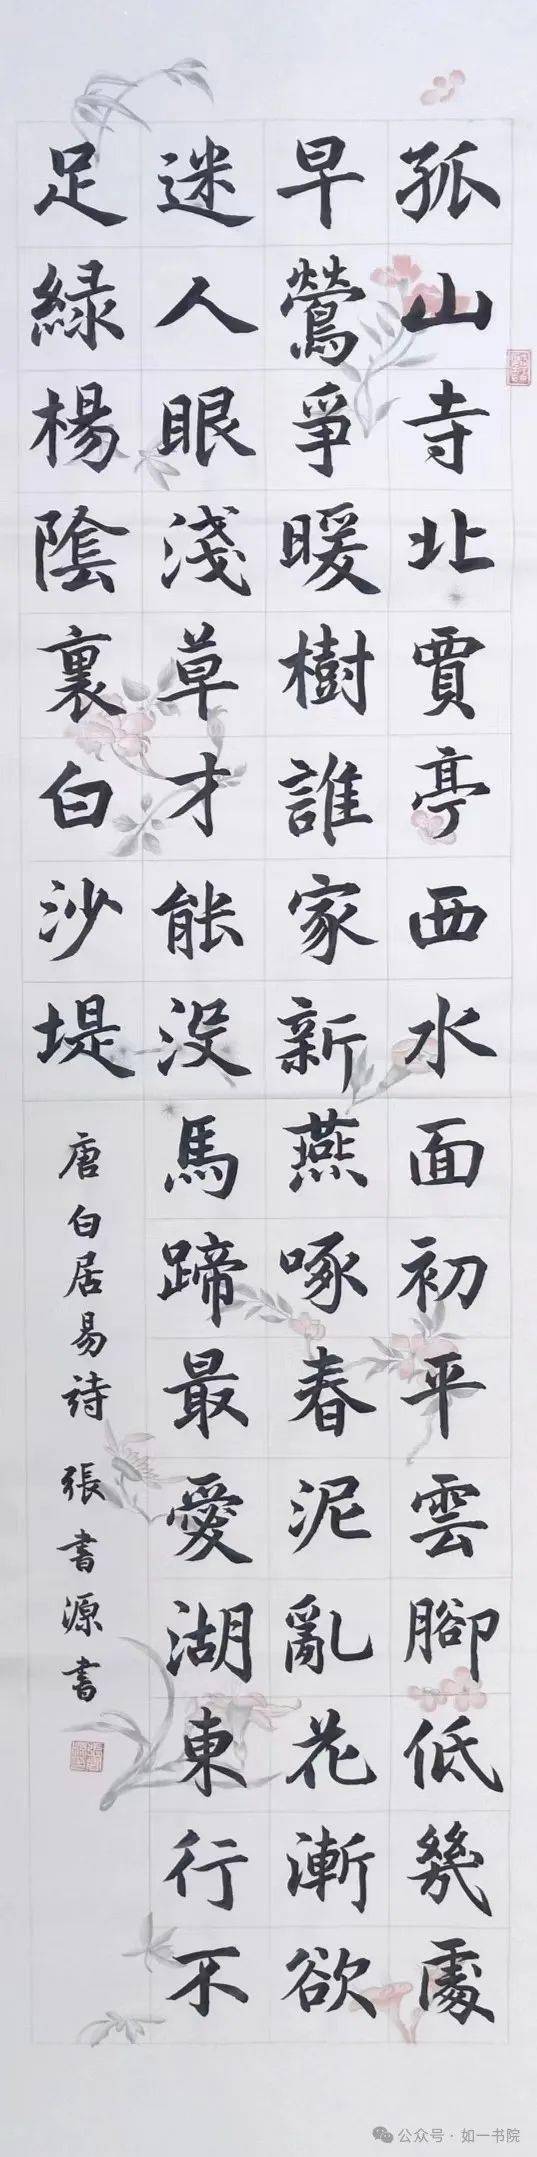 孤山寺北賈亭西水面初平雲腳低幾處
早鶯爭暖樹誰家新燕啄春泥亂花漸欲
迷人眼淺草才能没馬蹄最愛湖東行不
足緑楊陰裏白沙堤
唐白居易詩 張書源書
公众号·如一书院